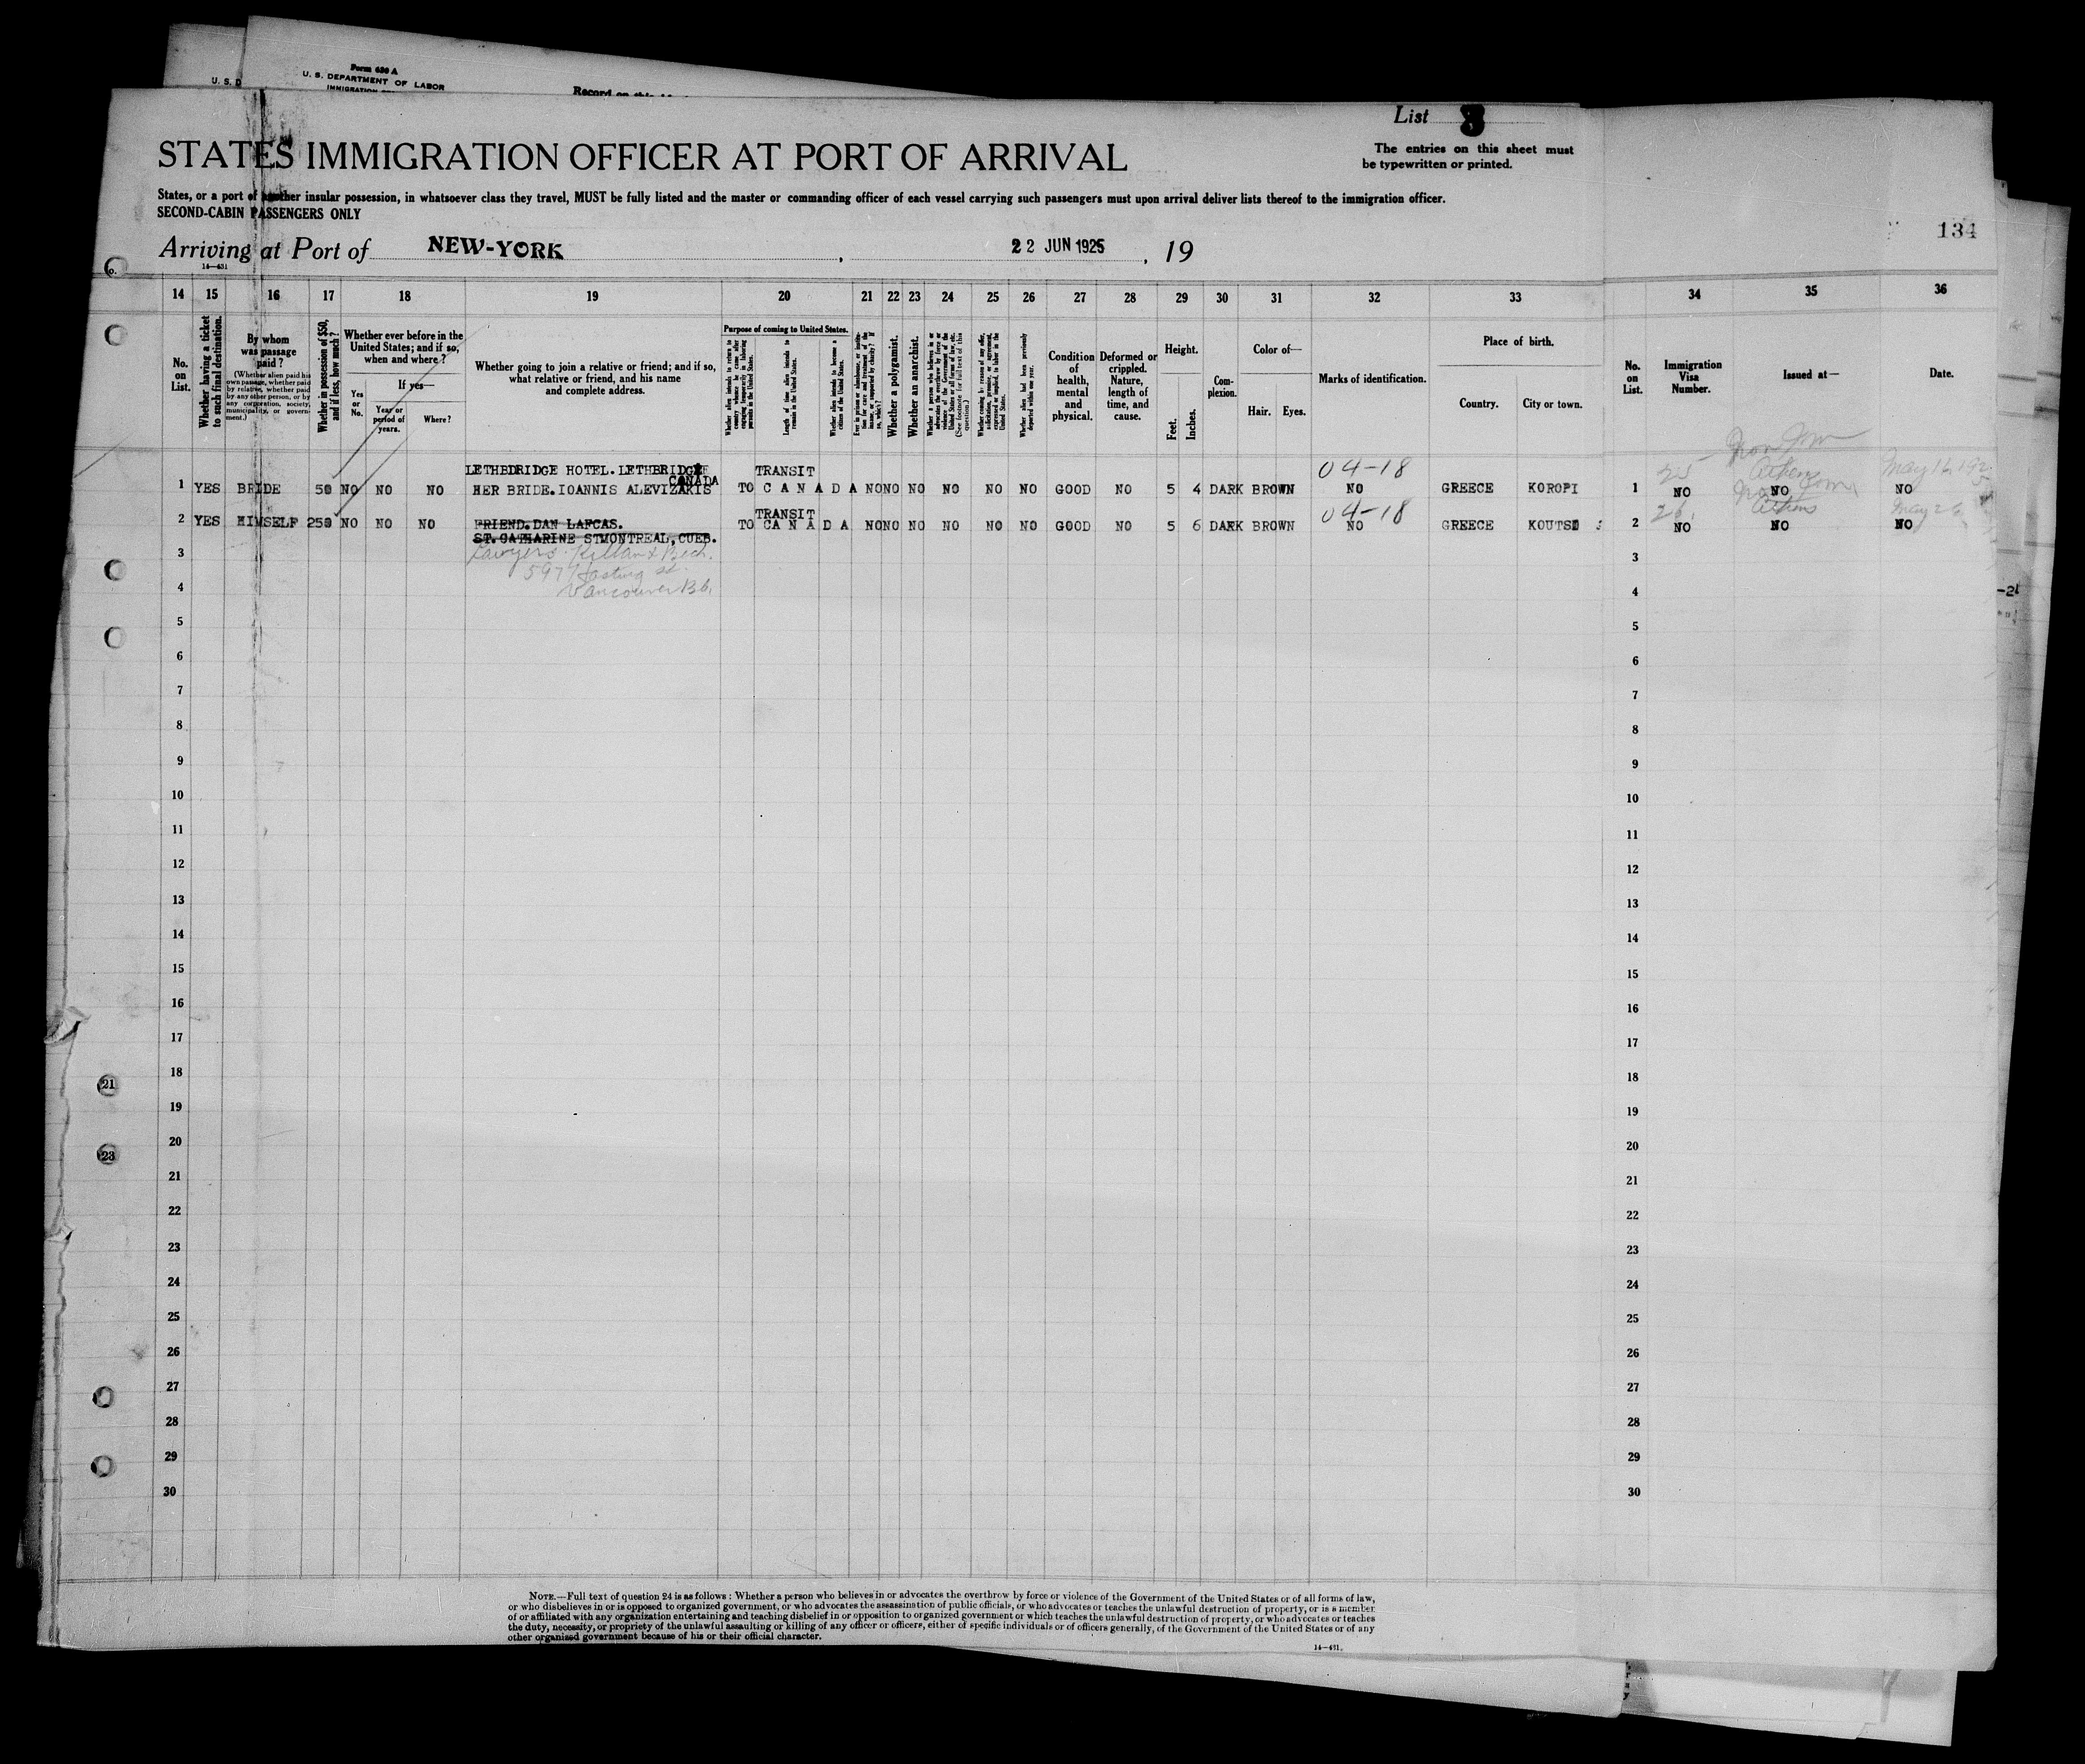 Form 630 A
U. S. D
U. S. DEPARTMENT OF LABOR
Record on this
List 3
STATES IMMIGRATION OFFICER AT PORT OF ARRIVAL
The entries on this sheet must
be typewritten or printed.
States, or a port of another insular possession, in whatsoever class they travel, MUST be fully listed and the master or commanding officer of each vessel carrying such passengers must upon arrival deliver lists thereof to the immigration officer.
SECOND-CABIN PASSENGERS ONLY
134
Arriving at Port of NEW-YORK, 22 JUN 1925, 19
14—431
14 15 16 17 18 19 20 21 22 23 24 25 26 27 28 29 30 31 32 33 34 35 36
No. on List.
Whether having a ticket to such final destination.
By whom was passage paid?
(Whether alien paid his own passage, whether paid by relative, whether paid by any other person, or by any corporation, society, municipality, or government.)
Whether in possession of $50, and if less, how much?
Whether ever before in the United States; and if so, when and where?
Yes or No.
If yes—
Year or period of years.
Where?
Whether going to join a relative or friend; and if so, what relative or friend, and his name and complete address.
Purpose of coming to United States.
Length of time alien intends to remain in the United States.
Whether alien intends to become a citizen of the United States.
Whether a polygamist.
Whether an anarchist.
Condition of health, mental and physical.
Deformed or crippled. Nature, length of time, and cause.
Height.
Feet.
Inches.
Complexion.
Color of—
Hair. Eyes.
Marks of identification.
Place of birth.
Country. City or town.
No. on List.
Immigration Visa Number.
Issued at—
Date.
LETHBDRIDGE HOTEL. LETHBRIDGE TRANSIT 04-18 25 Athens May 16, 192
CANADA
1 YES BRIDE 50 NO NO NO HER BRIDE. IOANNIS ALEVIZAKIS TO CANADA NO NO NO NO NO NO GOOD NO 5 4 DARK BROWN NO GREECE KOROPI 1 NO NO NO
TRANSIT 04-18 26 Athens May 26
2 YES HIMSELF 250 NO NO NO FRIEND. DAN LAFCAS. TO CANADA NO NO NO NO NO NO GOOD NO 5 6 DARK BROWN NO GREECE KOUTSI 2 NO NO NO
ST. CATHARINE ST MONTREAL, CUEB.
3 Lawyers 3
597 Hasting st.
4 Vancouver B.C. 4
5 5
6 6
7 7
8 8
9 9
10 10
11 11
12 12
13 13
14 14
15 15
16 16
17 17
18 18
21
19 19
20 20
23
21 21
22 22
23 23
24 24
25 25
26 26
27 27
28 28
29 29
30 30
NOTE.—Full text of question 24 is as follows: Whether a person who believes in or advocates the overthrow by force or violence of the Government of the United States or of all forms of law,
or who disbelieves in or is opposed to organized government, or who advocates the assassination of public officials, or who advocates or teaches the unlawful destruction of property, or is a member
of or affiliated with any organization entertaining and teaching disbelief in or opposition to organized government or which teaches the unlawful destruction of property, or who advocates or teaches
the duty, necessity, or propriety of the unlawful assaulting or killing of any officer or officers, either of specific individuals or of officers generally, of the Government of the United States or of any
other organized government because of his or their official character.
14—431